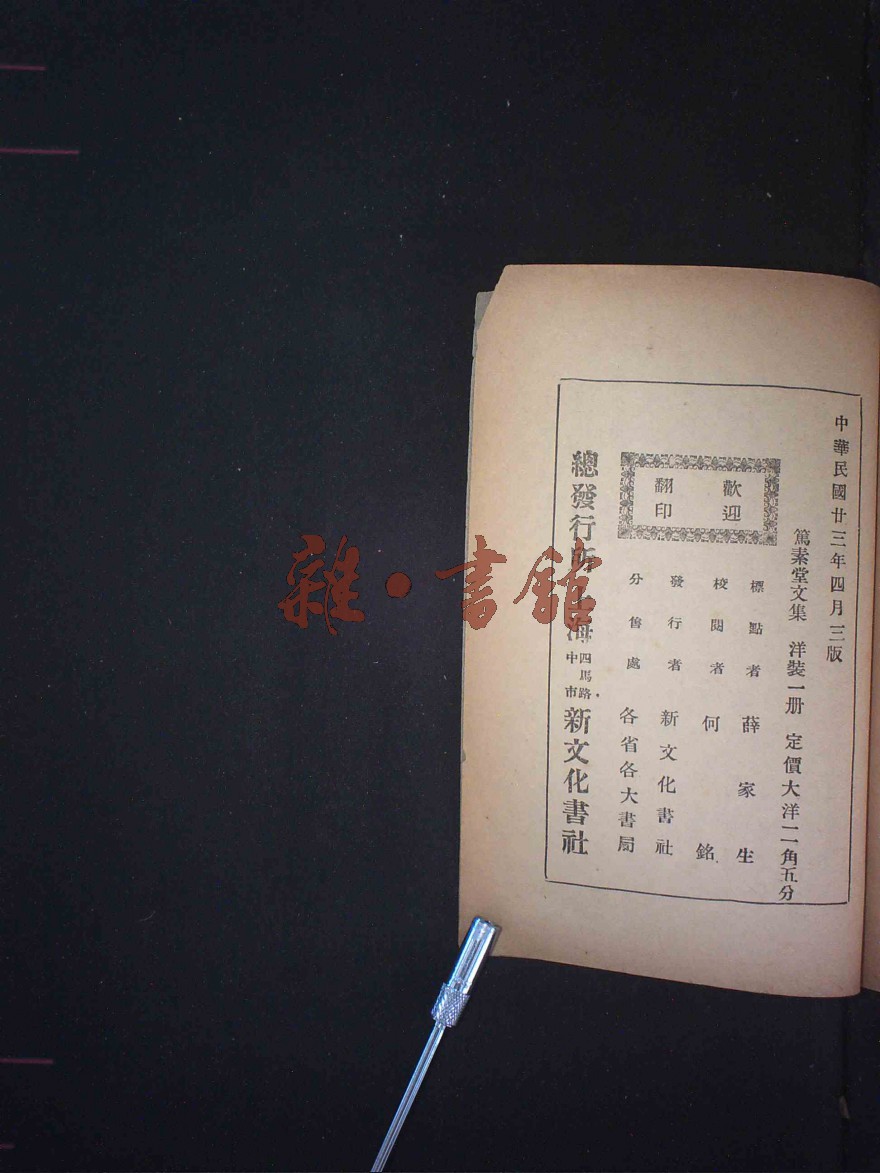 中華民國廿三年四月三版
篤素堂文集 洋裝一册 定價大洋二角五分
歡迎
翻印
標點者 薛家生
校閱者 何銘
發行者 新文化書社
分售處 各省各大書局
總發行所上海四馬路中市新文化書社
雜·書館